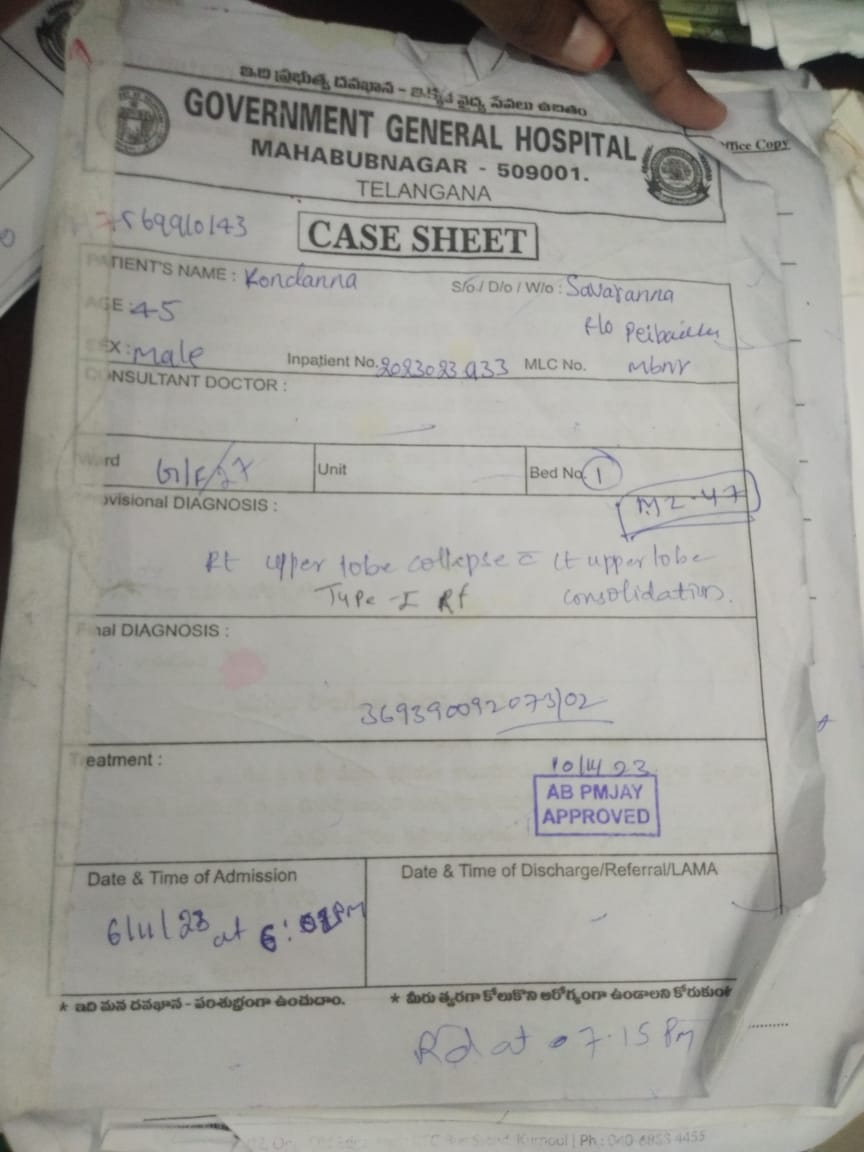 ఇది ప్రభుత్వ దవఖాన - ఇక్కడ వైద్య సేవలు ఉచితం
GOVERNMENT GENERAL HOSPITAL
MAHABUBNAGAR - 509001.
TELANGANA
Office Copy
7569910143
CASE SHEET
PATIENT'S NAME : Kondanna
S/o./ D/o / W/o : Savaranna
AGE : 45
R/o
SEX : Male
Inpatient No. 2023023933 MLC No.
Mbnr
CONSULTANT DOCTOR :
Ward G/F/27
Unit
Bed No. 1
M2-47
Provisional DIAGNOSIS :
Rt upper lobe collapse c̄ Lt upper lobe
Type-I Rf consolidation.
Final DIAGNOSIS :
369390092073/02
Treatment :
10/11/23
AB PMJAY
APPROVED
Date & Time of Admission
Date & Time of Discharge/Referral/LAMA
6/11/23 at 6:01 PM
* ఇది మన దవఖాన - పరిశుభ్రంగా ఉంచుదాం.
* మీరు త్వరగా కోలుకొని ఆరోగ్యంగా ఉండాలని కోరుకుంటూ
Rd at 7.15 Pm
Kurnool | Ph : 040-6853 4455